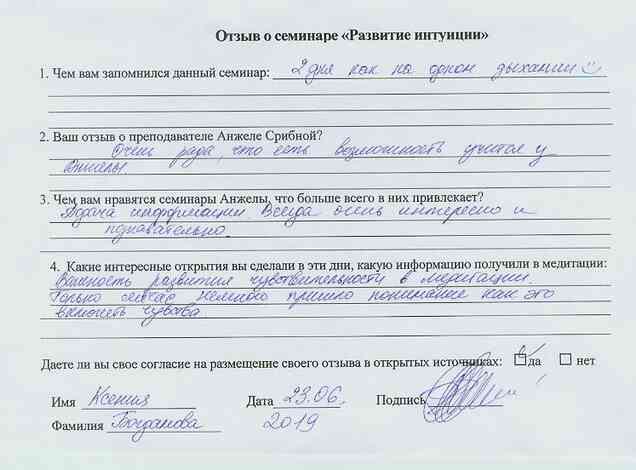 Отзыв о семинаре «Развитие интуиции»
1. Чем вам запомнился данный семинар: 2 дня как на одном дыхании
2. Ваш отзыв о преподавателе Анжеле Срибной?
Очень рада, что есть возможность учится у
Анжелы.
3. Чем вам нравятся семинары Анжелы, что больше всего в них привлекает?
Подача информации Всегда очень интересно и
познавательно.
4. Какие интересные открытия вы сделали в эти дни, какую информацию получили в медитации:
Важность развития чувствительности в медитации.
Только сейчас немного пришло понимание как это
включать чувства
Даете ли вы свое согласие на размещение своего отзыва в открытых источниках: да нет
Имя Ксения Дата 23.06. Подпись
Фамилия Богданова 2019